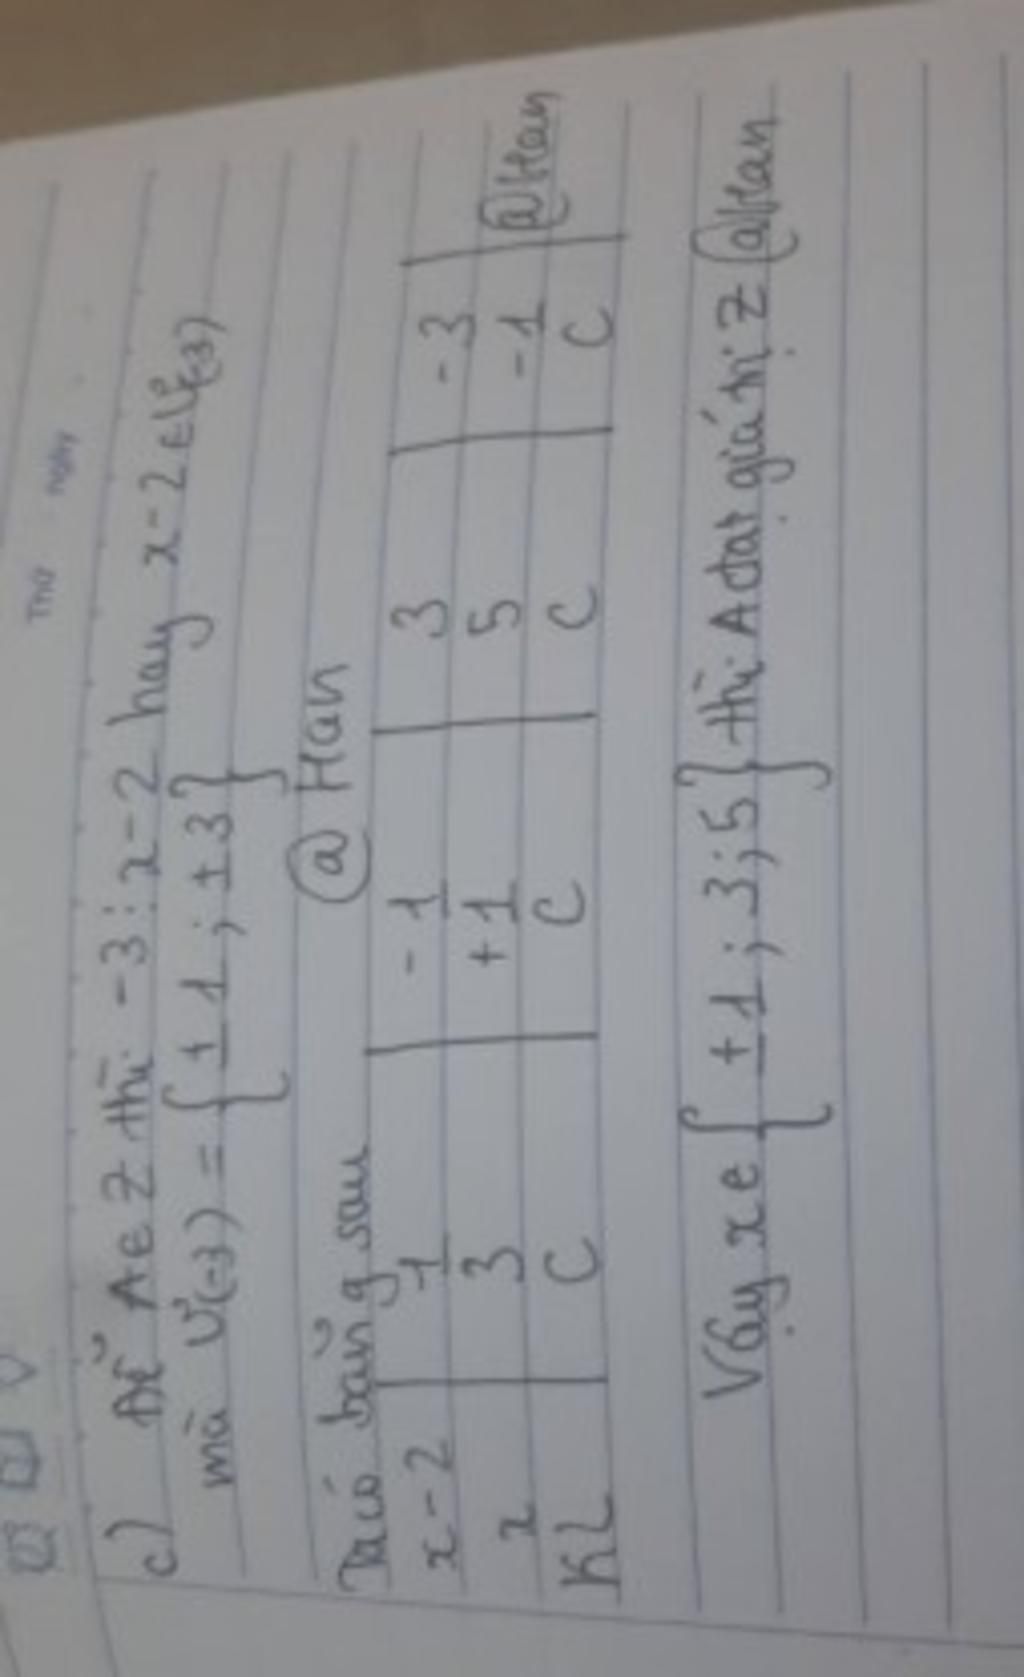 Thứ ngày
c) Để A ∈ Z thì -3 ⋮ x-2 hay x-2 ∈ Ư(-3)
mà Ư(-3) = { ±1 ; ±3 }
@ Han
Ta có bảng sau
x-2 | 1 | -1 | 3 | -3 |
x | 3 | +1 | 5 | -1 | @Han
KL | C | C | C | C |
Vậy x ∈ { ±1 ; 3 ; 5 } thì A đạt giá trị Z @Han